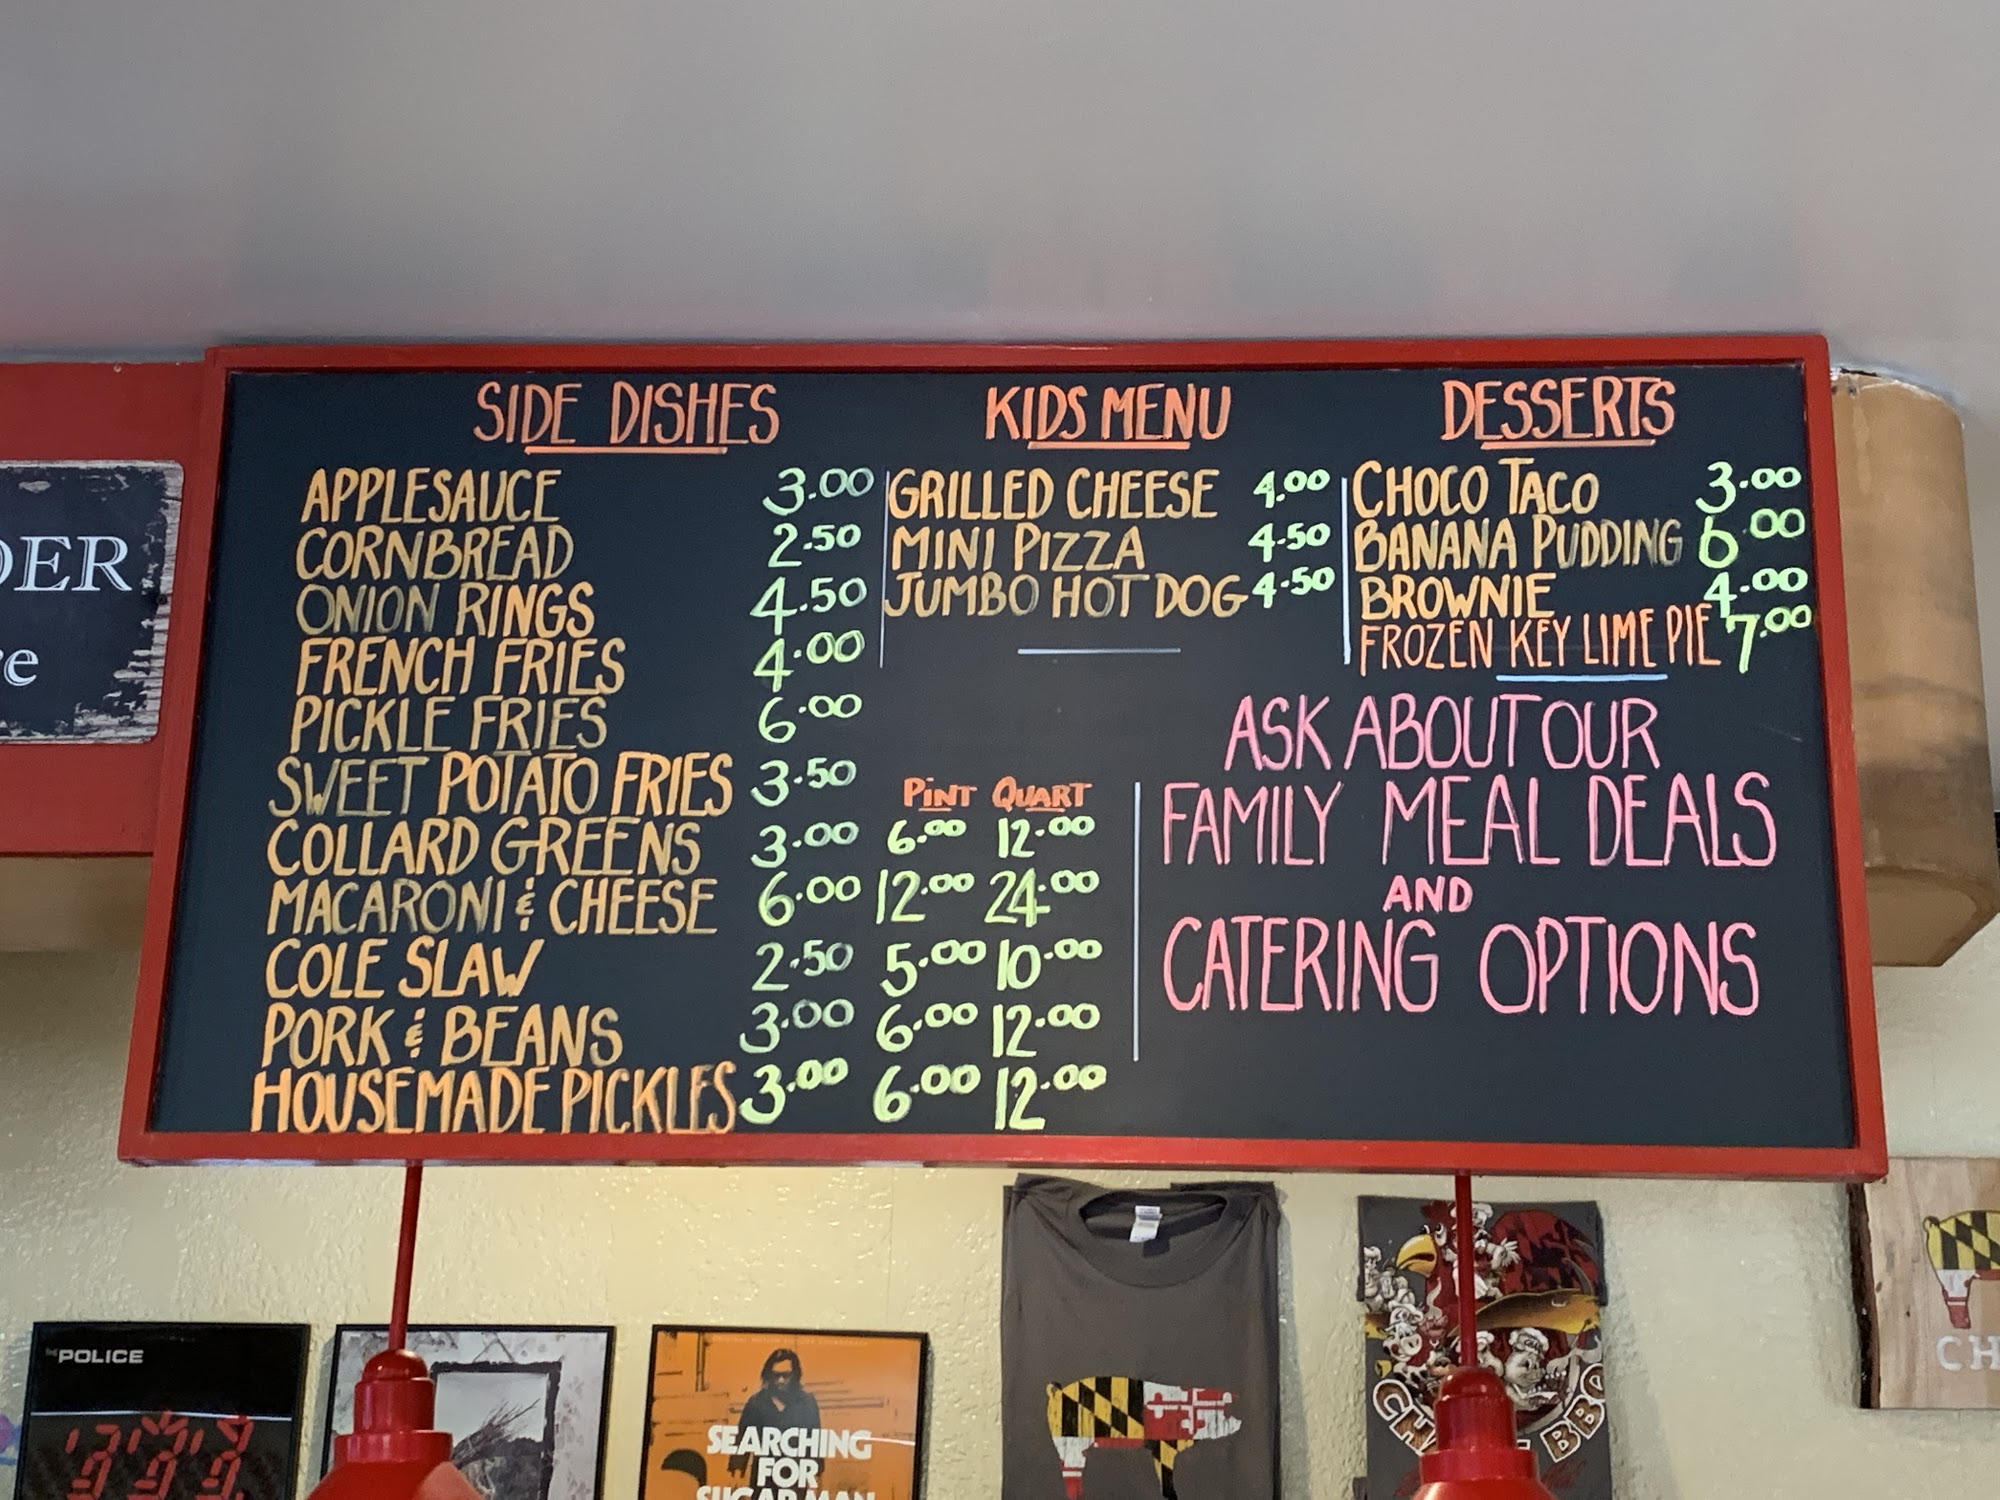 DER
re
SIDE DISHES
APPLESAUCE 3.00
CORNBREAD 2.50
ONION RINGS 4.50
FRENCH FRIES 4.00
PICKLE FRIES 6.00
SWEET POTATO FRIES 3.50
PINT QUART
COLLARD GREENS 3.00 6.00 12.00
MACARONI & CHEESE 6.00 12.00 24.00
COLE SLAW 2.50 5.00 10.00
PORK & BEANS 3.00 6.00 12.00
HOUSEMADE PICKLES 3.00 6.00 12.00
KIDS MENU
GRILLED CHEESE 4.00
MINI PIZZA 4.50
JUMBO HOT DOG 4.50
DESSERTS
CHOCO TACO 3.00
BANANA PUDDING 6.00
BROWNIE 4.00
FROZEN KEY LIME PIE 7.00
ASK ABOUT OUR
FAMILY MEAL DEALS
AND
CATERING OPTIONS
THE POLICE
SEARCHING
FOR
SUGAR MAN
BBQ
CH